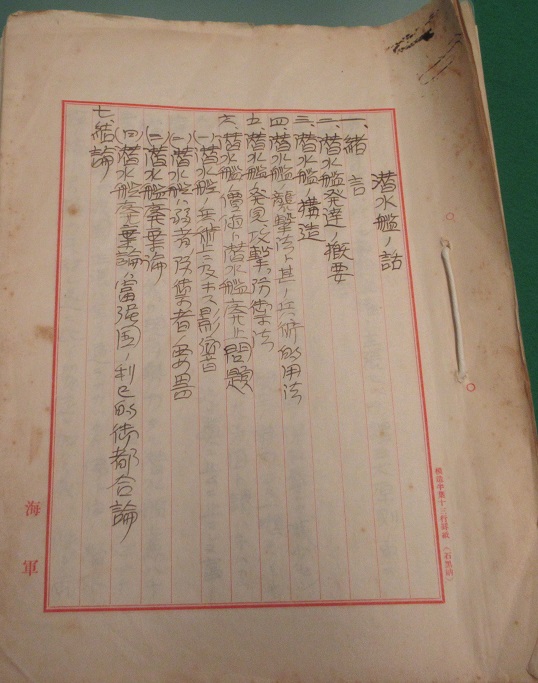 潜水艦ノ話
一、緒言
二、潜水艦発達ノ概要
三、潜水艦ノ構造
四、潜水艦ノ襲撃法ト其ノ兵術的用法
五、潜水艦発見攻撃防禦法
六、潜水艦ノ価値ト潜水艦廃止問題
(一)潜水艦ノ兵術上ニ及ボス影響
(二)潜水艦ハ弱者防禦者ノ要具
(三)潜水艦廃棄論
(四)潜水艦廃棄論ハ富強国ノ利己的御都合論
七、結論
海軍